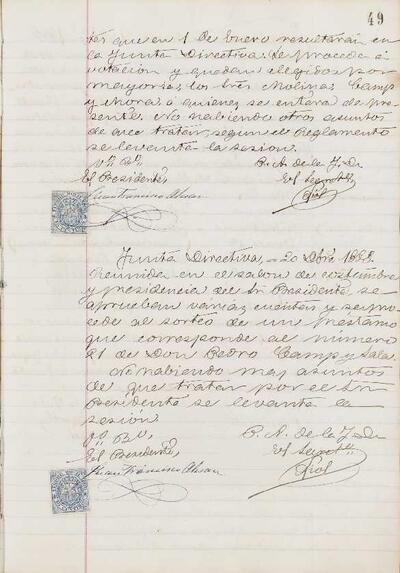 49
tes que en 1 de Enero resultarán en
la Junta Directiva. Se procede á
votación y quedan elegidos por
mayoría, los Sres Molina, Camp
y Mora á quienes se entera de pre-
sente. No habiendo otros asuntos
de que tratar, segun el Reglamento
se levanta la sesion.
Vº Bº
P. A. de la J. Dª
El Presidente,
El Secretº
Juan Francisco
Junta Directiva, 20 Dbre
Reunida en el salon de costumbre
y presidencia del Sr. Presidente se
aprueban varias cuentas y se pro-
cede al sorteo de un préstamo
que corresponde al número
21 de Don Pedro Camp y Sala.
No habiendo mas asuntos
de que tratar por el Sr.
Presidente se levanta la
sesión.
Vº Bº
P. A. de la J. Dª
El Presidente,
El Secretº
Juan Francisco